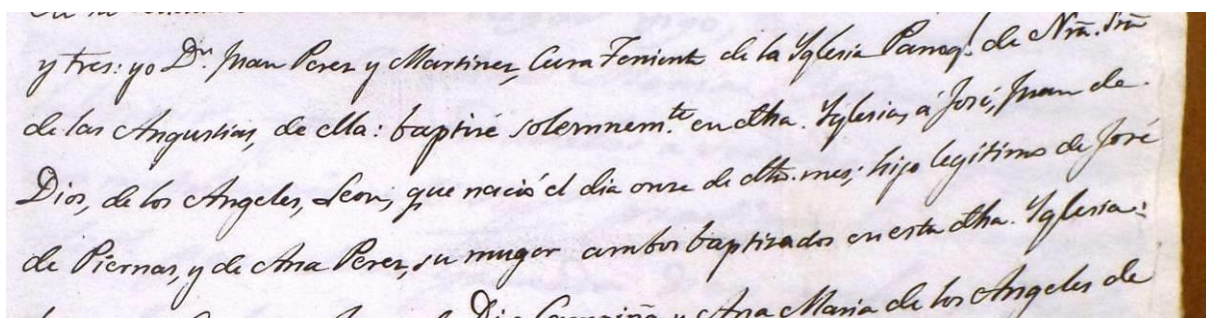 y tres: yo Dn. Juan Perez y Martinez, Cura Teniente de la Yglesia Parroql. de Ntra. Sra
de las Angustias, de ella: baptizé solemnemte. en dha. Yglesia, á José, Juan de
Dios, de los Angeles, Leon; que nació el dia onze de dho. mes; hijo legitimo de José
de Piernas, y de Ana Perez, su muger ambos baptizados en esta dha. Yglesia:
y Ana Maria de los Angeles de